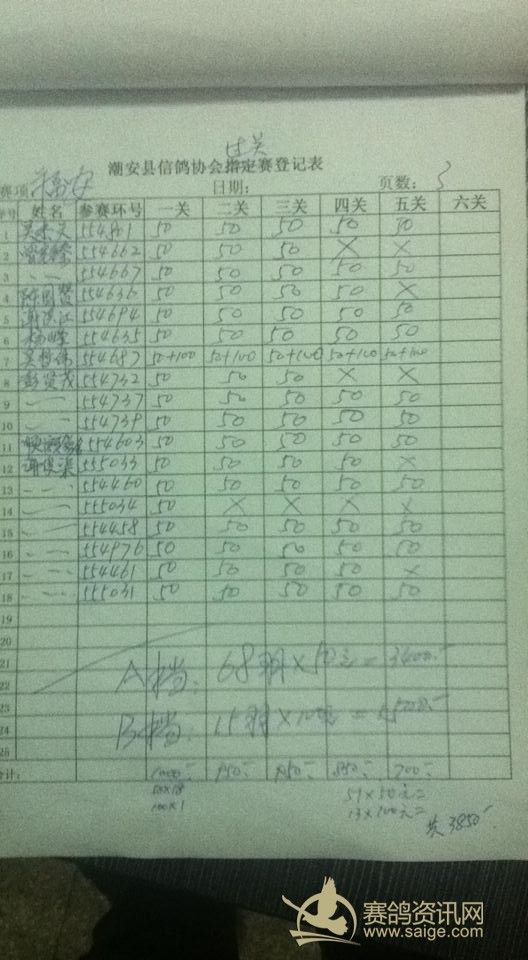 过关
潮安县信鸽协会指定赛登记表
赛项: 福安 日期: 页数: 3
序号 姓名 参赛环号 一关 二关 三关 四关 五关 六关
1 554801 50 50 50 50 50
2 554662 50 50 50 × ×
3 〃 554667 50 50 50 50 50
4 554636 50 50 50 50 ×
5 554694 50 50 50 50 50
6 554635 50 50 50 50 50
7 554687 50+100 50+100 50+100 50+100 50+100
8 彭贤茂 554732 50 50 50 × ×
9 〃 554737 50 50 50 50 50
10 〃 554739 50 50 50 50 50
11 554603 50 50 50 50 50
12 555033 50 50 50 50 ×
13 〃 554460 50 50 50 50 50
14 〃 555034 50 × × × ×
15 〃 554458 50 50 50 50 50
16 〃 554976 50 50 50 50 50
17 〃 554461 50 50 50 50 ×
18 〃 555031 50 50 50 50 50
19
20
21 A档: 68羽×50元=3400.-
22
23 B档: 15羽×100元=1500.-
24
25
合计: 1000.- 950.- 950.- 850.- 700.-
50×18
100×1
51×50元=
13×100元=
共3850.-
赛鸽资讯网
www.saige.com